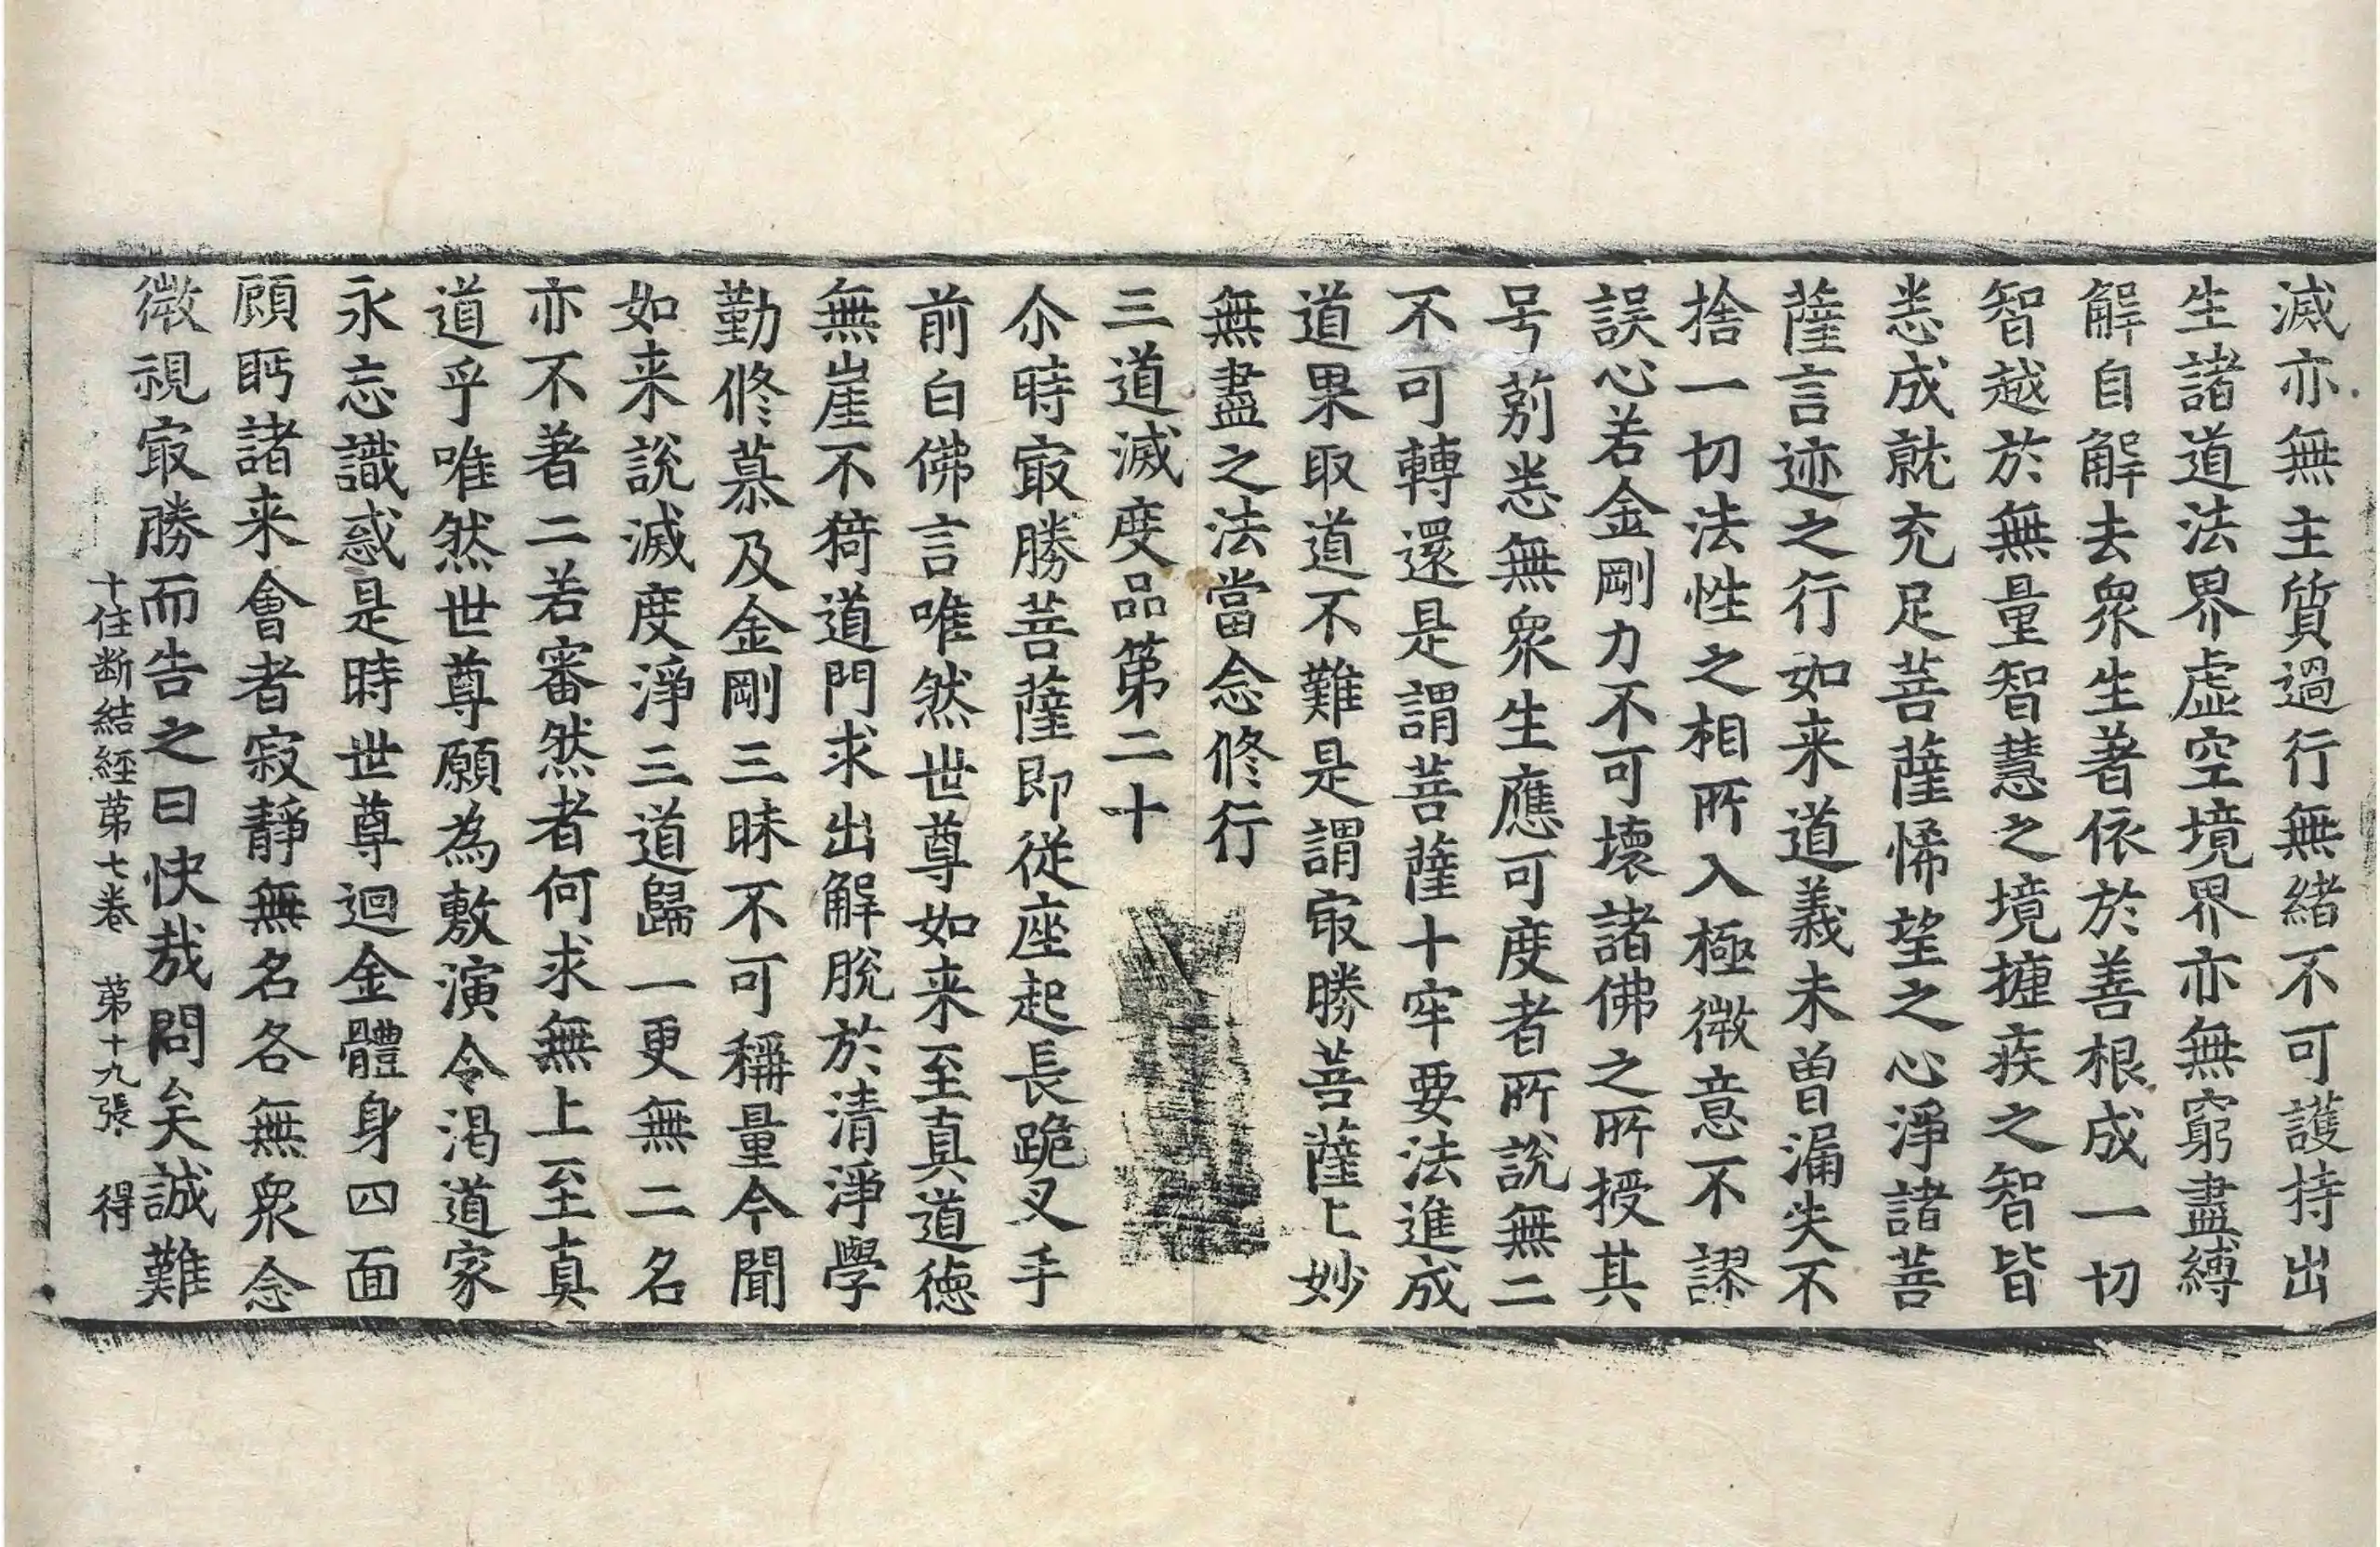 滅亦無主質過行無緒不可護持出
生諸道法界虛空境界亦無窮盡縛
解自解去衆生著依於善根成一切
智越於無量智慧之境摭疾之智皆
悉成就充足菩薩悕望之心淨諸菩
薩言迹之行如来道義未曽漏失不
捨一切法性之相所入極微意不謬
誤心若金剛力不可壞諸佛之所授其
号莂悉無衆生應可度者所說無二
不可轉還是謂菩薩十牢要法進成
道果取道不難是謂㝡勝菩薩上妙
無盡之法當念修行
三道滅度品第二十
尒時㝡勝菩薩即従座起長跪叉手
前白佛言唯然世尊如来至真道徳
無崖不猗道門求出解脫於清淨學
勤修慕及金剛三昧不可稱量今聞
如来說滅度淨三道歸一更無二名
亦不著二若審然者何求無上至真
道乎唯然世尊願為敷演令渇道家
永忘識惑是時世尊迴金體身四面
顧眄諸来會者寂靜無名各無衆念
微視㝡勝而告之曰快哉問矣誠難
十住断結經苐七卷 苐十九張 得